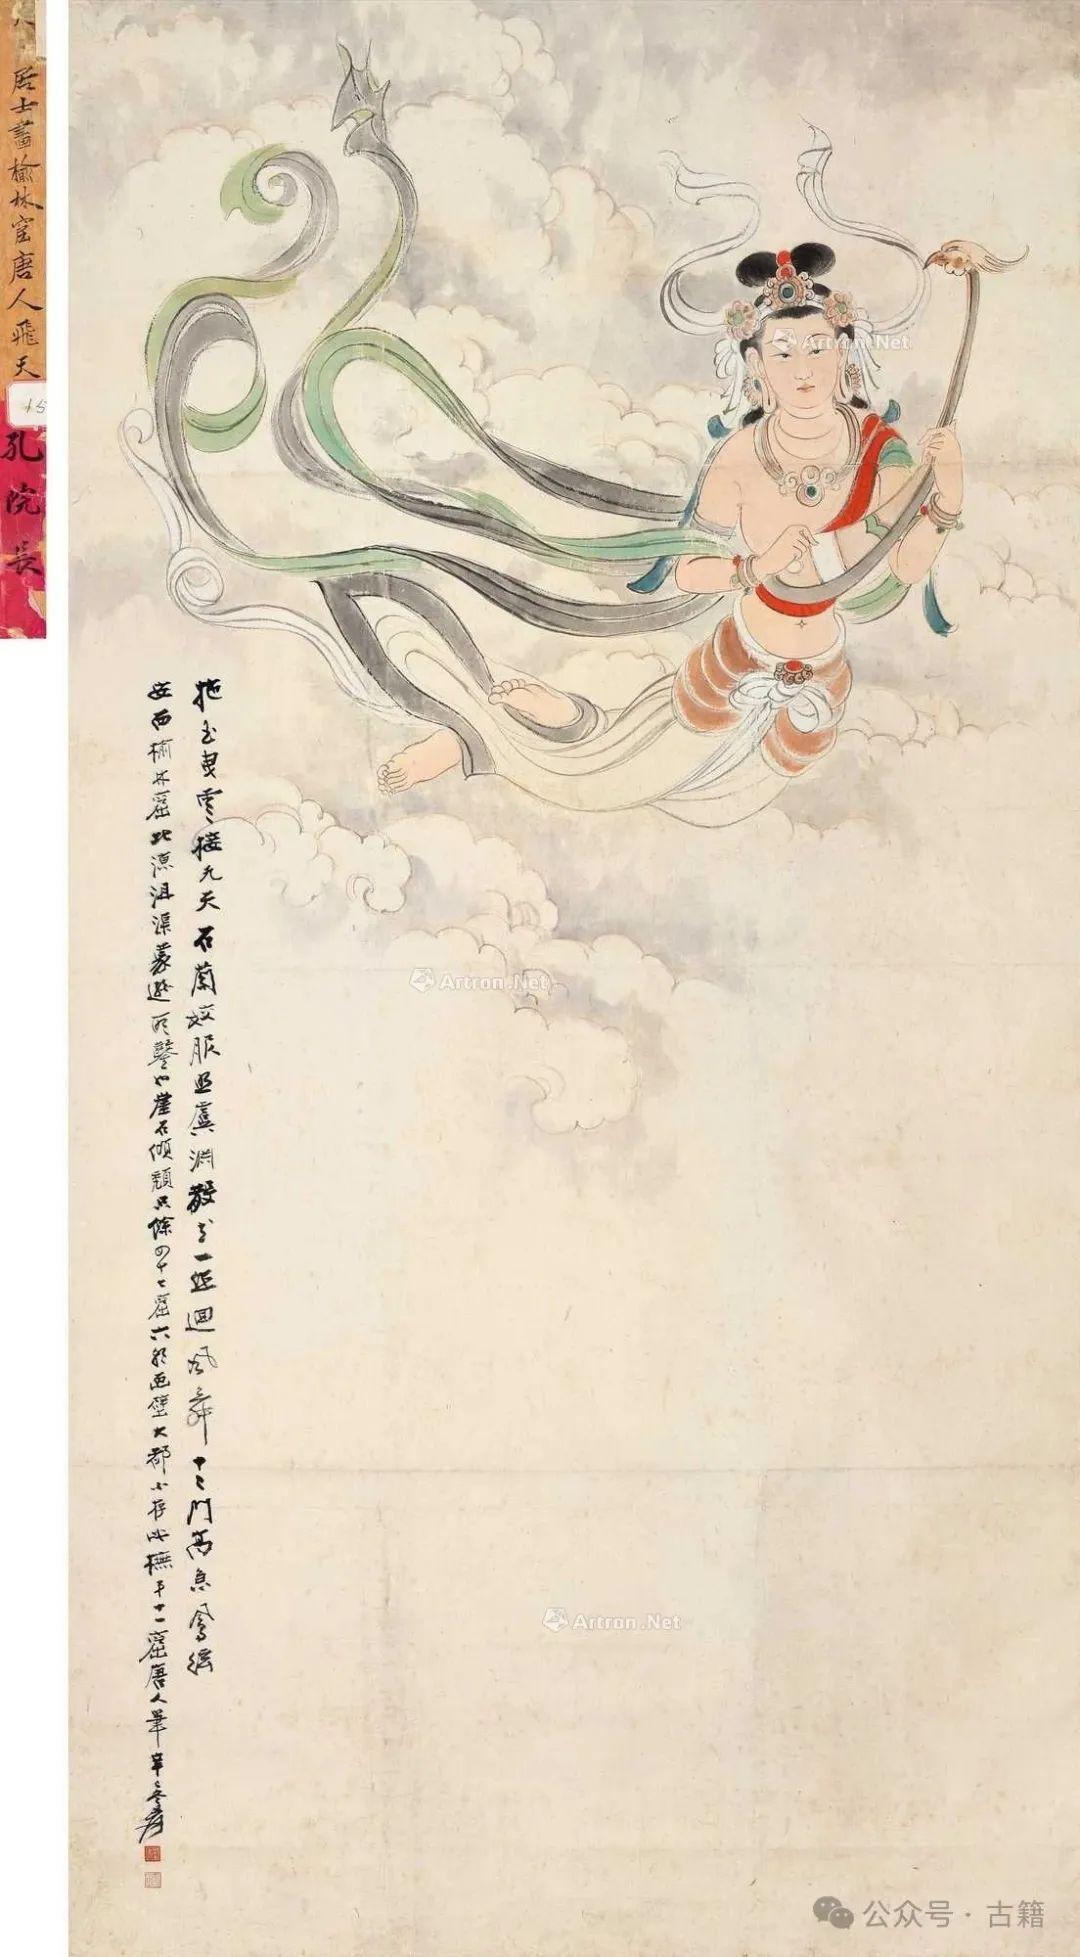 居士畫榆林窟唐人飛天
15
孔院長
拖玉曳雲接九天石蘭姣服照虞淵散一迴風舞十二門高急鳳絃
安西榆林窟北涼沮渠蒙遜所鑿也崖石傾頹只餘四十七窟六朝画壁大都不存此橅十一窟唐人筆辛爰
Artron.Net
Artron.Net
Artron.Net
公众号·古籍